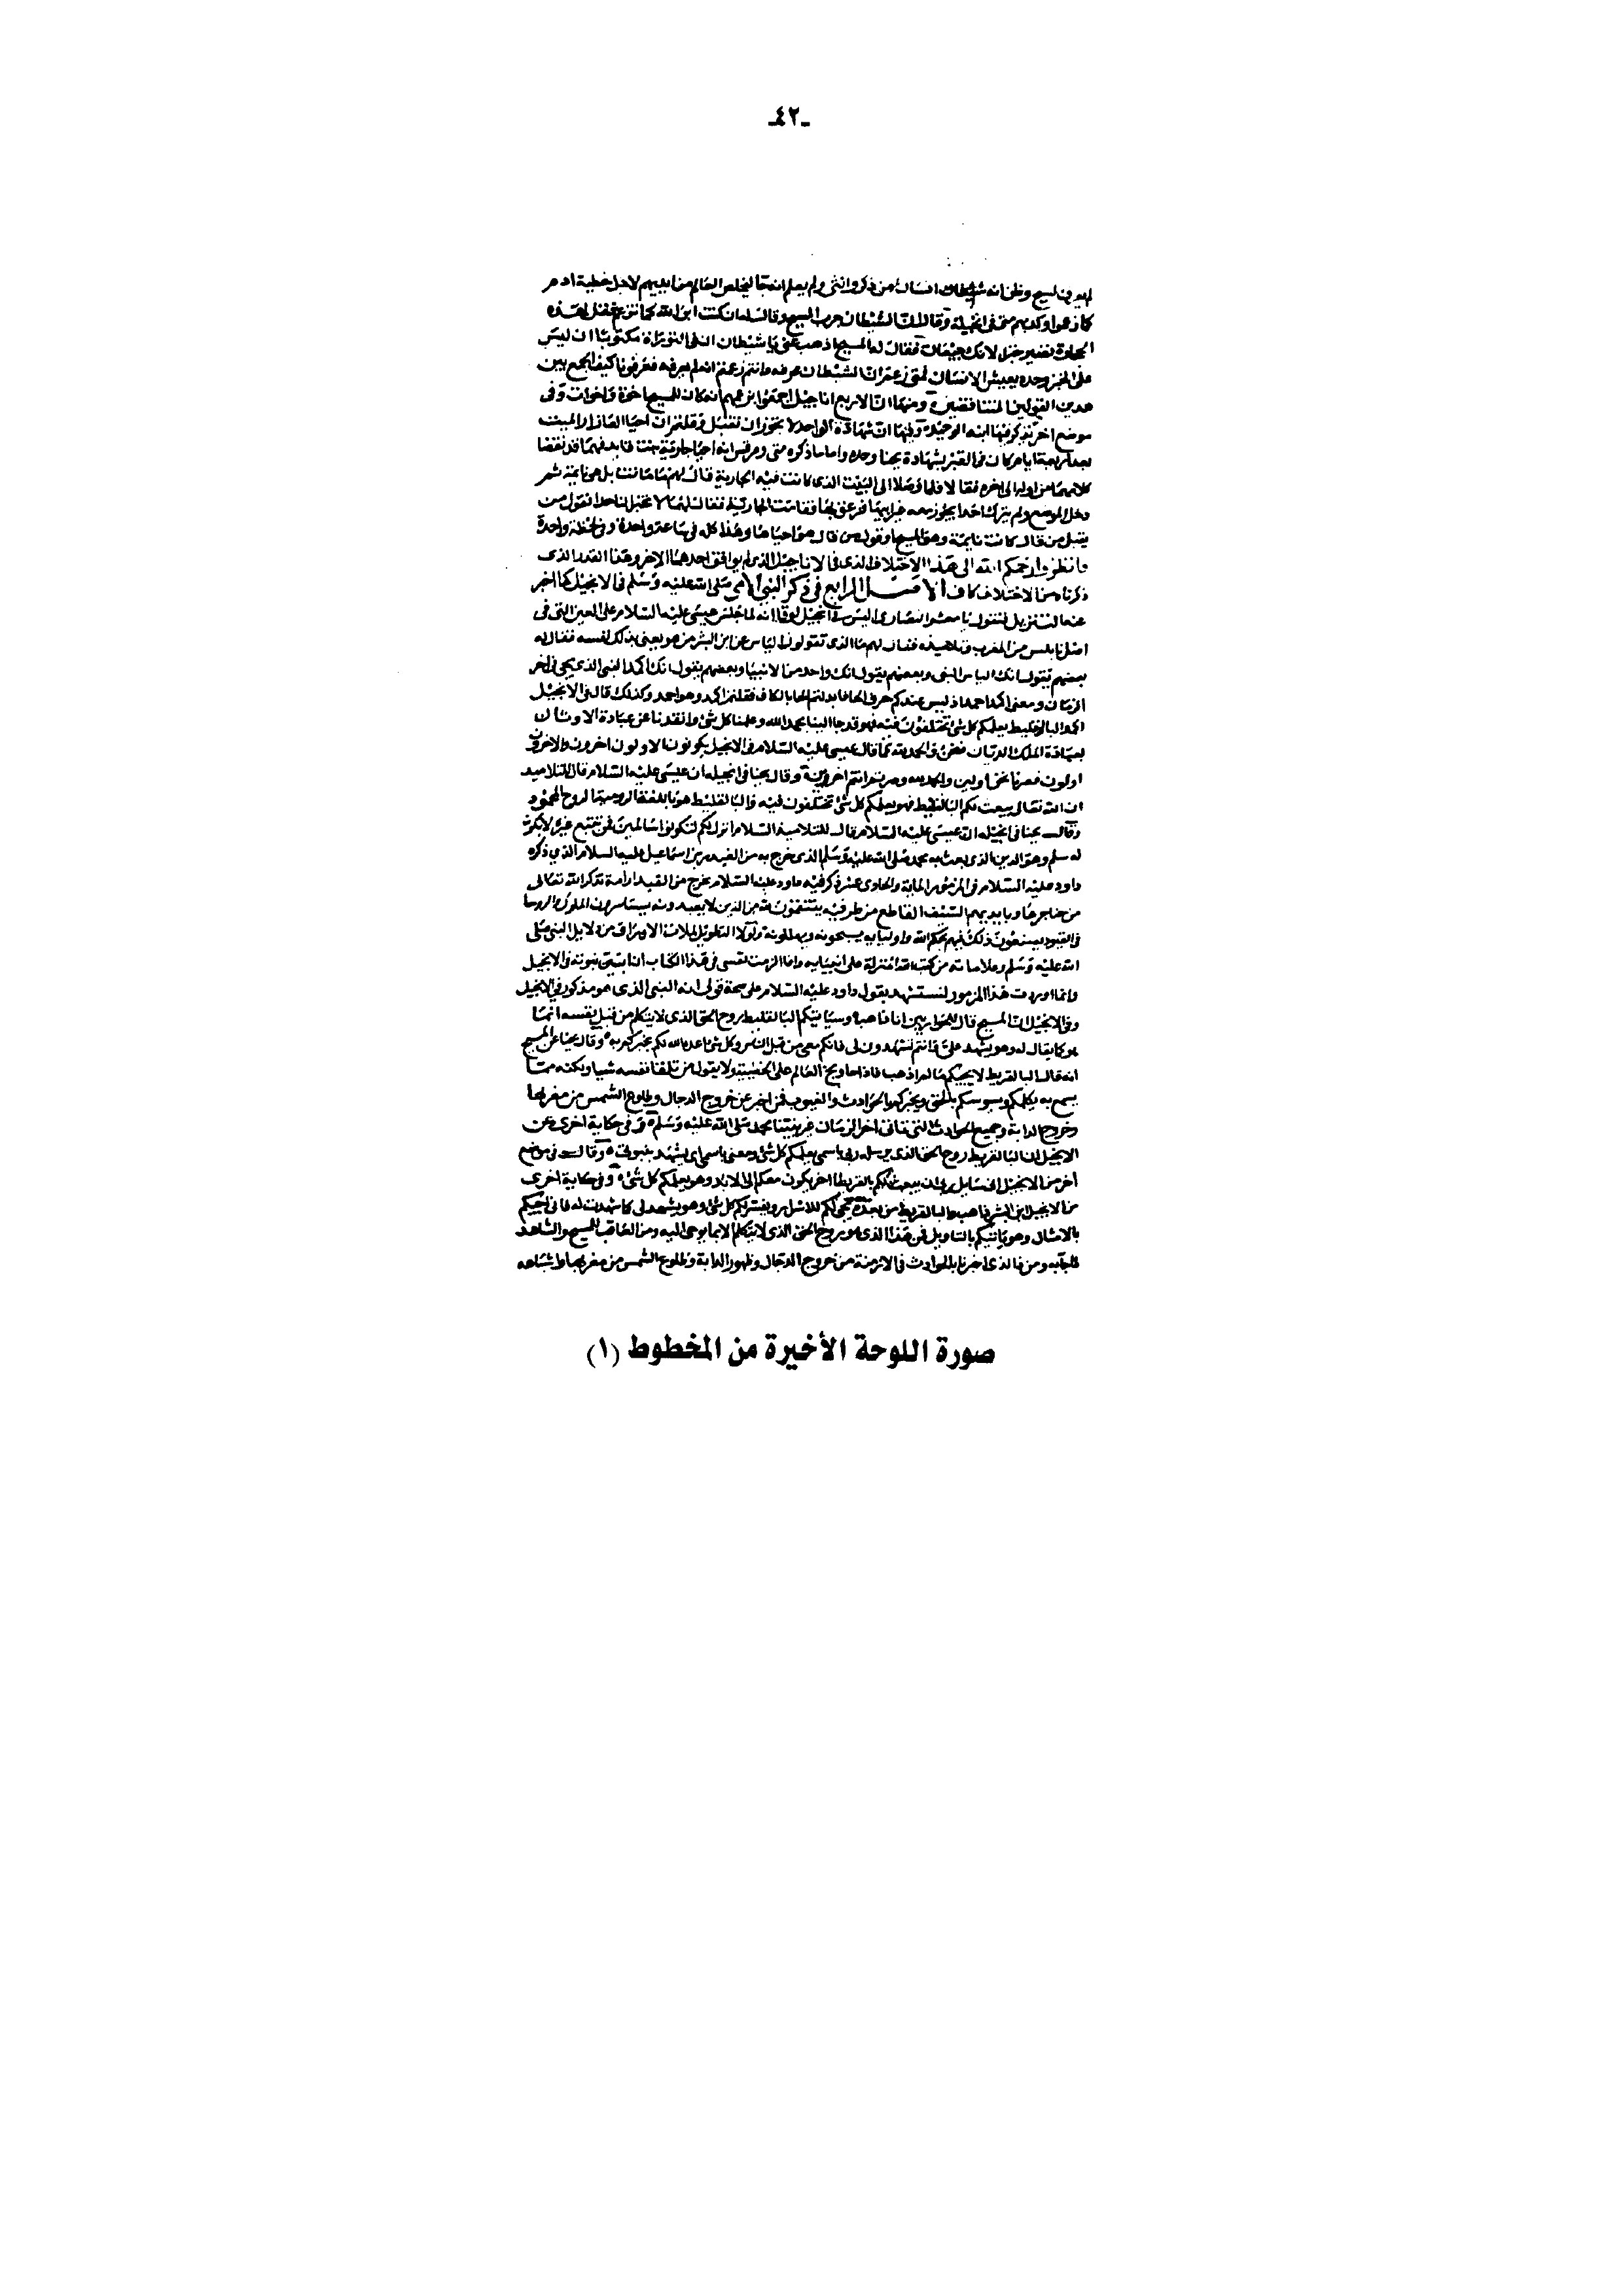 ـ٤٢ـ
وظن انه شيطان انسان من ذكر وانثى ولم يعلم انه جا ليخلص العالم من ابيهم لاجل خطية ادم
كما زعموا متى فى انجيله وقال ان الشيطان جرب المسيح وقال له ان كنت ابن الله كما تزعم فقل لهذه
الحجارة تصير خبز لانك جيعان فقال له المسيح اذهب عنى يا شيطان التوراة مكتوبا ان ليس
على الخبز وحده يعيش الانسان فمتى زعم ان الشيطان عرفه وانتم زعمتم انه لم يعرفه فعرفونا كيف الجمع بين
هدين القولين المتناقضين ومنها ان الاربع اناجيل اجمعوا انه كان للمسيح اخوة واخوات وفى
موضع اخر ابنه الوحيد ومنها ان شهادة الواحد لا يجوز ان تقبل وقلتم ان احيا العازار الميت
بعد اربعة ايام كان فى القبر بشهادة يحنا وحده واما ما ذكره متى ومرقس انه احيا جارية فقد نقضا
كلامهما من اوله الى اخره فقالا فلما وصلا الى البيت الذى كانت فيه الجارية قال لهم ما ماتت بل هى نايمة ثم
دخل الموضع ولم يترك احدا يجوز معه غير ابيها فقامت الجارية فقال لهما لا تخبرا احدا فقول من
يقبل من قال كانت نايمة وهو المسيح او قول من قال هو احياها وهذا كله فى ساعة واحدة وفى لحظة واحدة
فانظروا رحمكم الله الى هذا الاختلاف الذى فى الاناجيل الذى لم يوافق احدهما الاخر وهذا القدر الذى
ذكرناه من الاختلاف كاف الاصل الرابع فى ذكر النبى الامى صلى الله عليه وسلم فى الانجيل كما اخبر
عنه التنزيل فنقول يا معشر النصارى اليس فى انجيل لوقا انه لما جلس عيسى عليه السلام على العين التى فى
نابلس من المغرب فقال لهم ما الذى تقولون الناس عن ابن البشر من هو يعنى بذلك نفسه فقال له
بعضهم يقول انك الياس النبى وبعضهم يقول انك واحد من الانبيا وبعضهم يقول انك اكمد النبى الذى يجى فى اخر
الزمان ومعنى اكمد احمد اذ ليس عندكم حرف الحا فابدلتم الحا بالكاف فقلتم اكمد وهو احمد وكذلك قال فى الانجيل
البارقليط يعلمكم كل شئ تختلفون فيه فهو قد جا الينا بحمد الله وعلمنا كل شئ وانقذنا عن عبادة الاوثان
بعبادة الملك الديان فنحن ولله الحمد كما قال عيسى عليه السلام فى الانجيل يكونون الاولون اخرون والاخرون
اولون فصرنا نحن اولين والحمد لله وصرتم انتم اخرون وقال يحنا فى انجيله ان عيسى عليه السلام قال للتلاميد
ان الله تعالى يبعث لكم البارقليط فهو يعلمكم كل شئ تختلفون فيه والبارقليط هو باللغة الرومية الروح المحمود
وقال يحنا فى انجيله ان عيسى عليه السلام قال للتلاميذ السلام اترك لكم لتكونوا سالمين فمن يتبع غيره لا يكون
له سلم وهو الدين الذى بعث به محمد صلى الله عليه وسلم الذى خرج به من القيدار بن اسماعيل عليه السلام الذى ذكره
داود عليه السلام فى المزمور الماية والحادى عشر ذكر فيه داود عليه السلام يخرج من القيدار امة تذكر الله تعالى
من حناجرها وبايديهم السيف القاطع من طرفيه ينتقمون لله من الذين لا يعبدونه يستاسرون الملوك والروسا
فى القيود يصنعون ذلك فيهم بحكم الله واوليايه يسبحونه ويهللونه ولولا التطويل لملات الاوراق من دلايل النبى صلى
الله عليه وسلم وعلاماته من كتب الله المنزلة على انبيايه وانا الزمت نفسى فى هذا الكتاب ان ابين نبوته فى الانجيل
وانما اوردت هذا المزمور لنستشهد بقول داود عليه السلام على صحة قولى انه النبى الذى هو مذكور فى الانجيل
وفى الانجيل ان المسيح قال للحواريين انا ذاهب وسياتيكم البارقليط روح الحق الذى لا يتكلم من قبل نفسه انما
هو كما يقال له وهو يشهد على وانتم تشهدون لى فانكم معى من قبل الناس وكل شئ اعده الله لكم يخبركم به وقال يحنا عن المسيح
انه قال البارقليط لا يجيكم ما لم اذهب فاذا جا وبخ العالم على الخطية ولا يقول من تلقا نفسه شيا ولكنه مما
يسمع به يكلمكم ويسوسكم بالحق ويخبركم بالحوادث والغيوب فمن اخبر عن خروج الدجال وطلوع الشمس من مغربها
وخروج الدابة وجميع الحوادث التى تاتى فى اخر الزمان غير نبينا محمد صلى الله عليه وسلم وفى حكاية اخرى عن
الانجيل ان البارقليط روح الحق الذى يرسله ربى باسمى يعلمكم كل شئ ومعنى باسمى اى يشهد بنبوتى وقال فى موضع
اخر من الانجيل انى سايل ربى ان يبعث لكم بالقريط اخر يكون معكم الى الابد وهو يعلمكم كل شئ وفى حكاية اخرى
من الانجيل ابن البشر ذاهب والبالقريط من بعده يجى لكم بالاسرار ويفسر لكم كل شئ وهو يشهد لى كما شهدت له فانى اجيكم
بالامثال وهو ياتيكم بالتاويل فمن هذا الذى هو روح الحق الذى لا يتكلم الا بما يوحى اليه ومن العاقب للمسيح والشاهد
لما جا به ومن ذا الذى اخبرنا بالحوادث فى الازمنة من خروج الدجال وظهور الدابة وطلوع الشمس من مغربها واشباهه
صورة اللوحة الأخيرة من المخطوط (١)